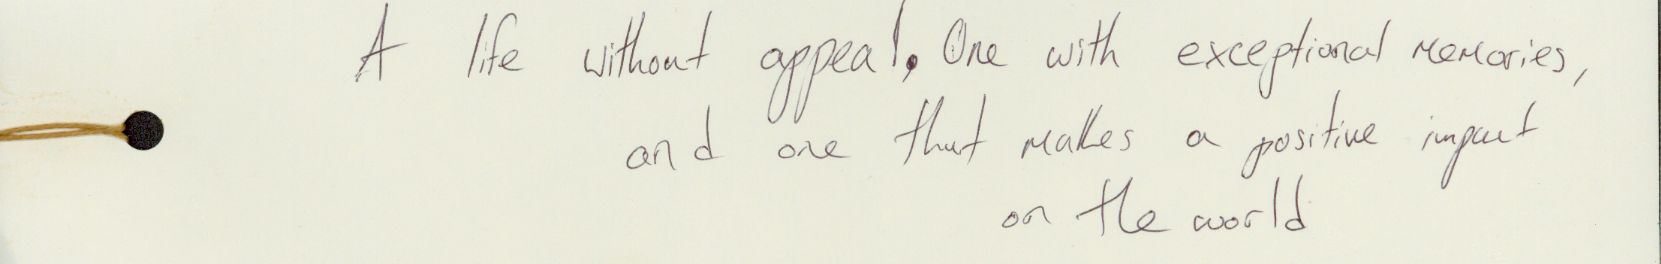 A life without appeal. One with exceptional memories,
and one that makes a positive impact
on the world